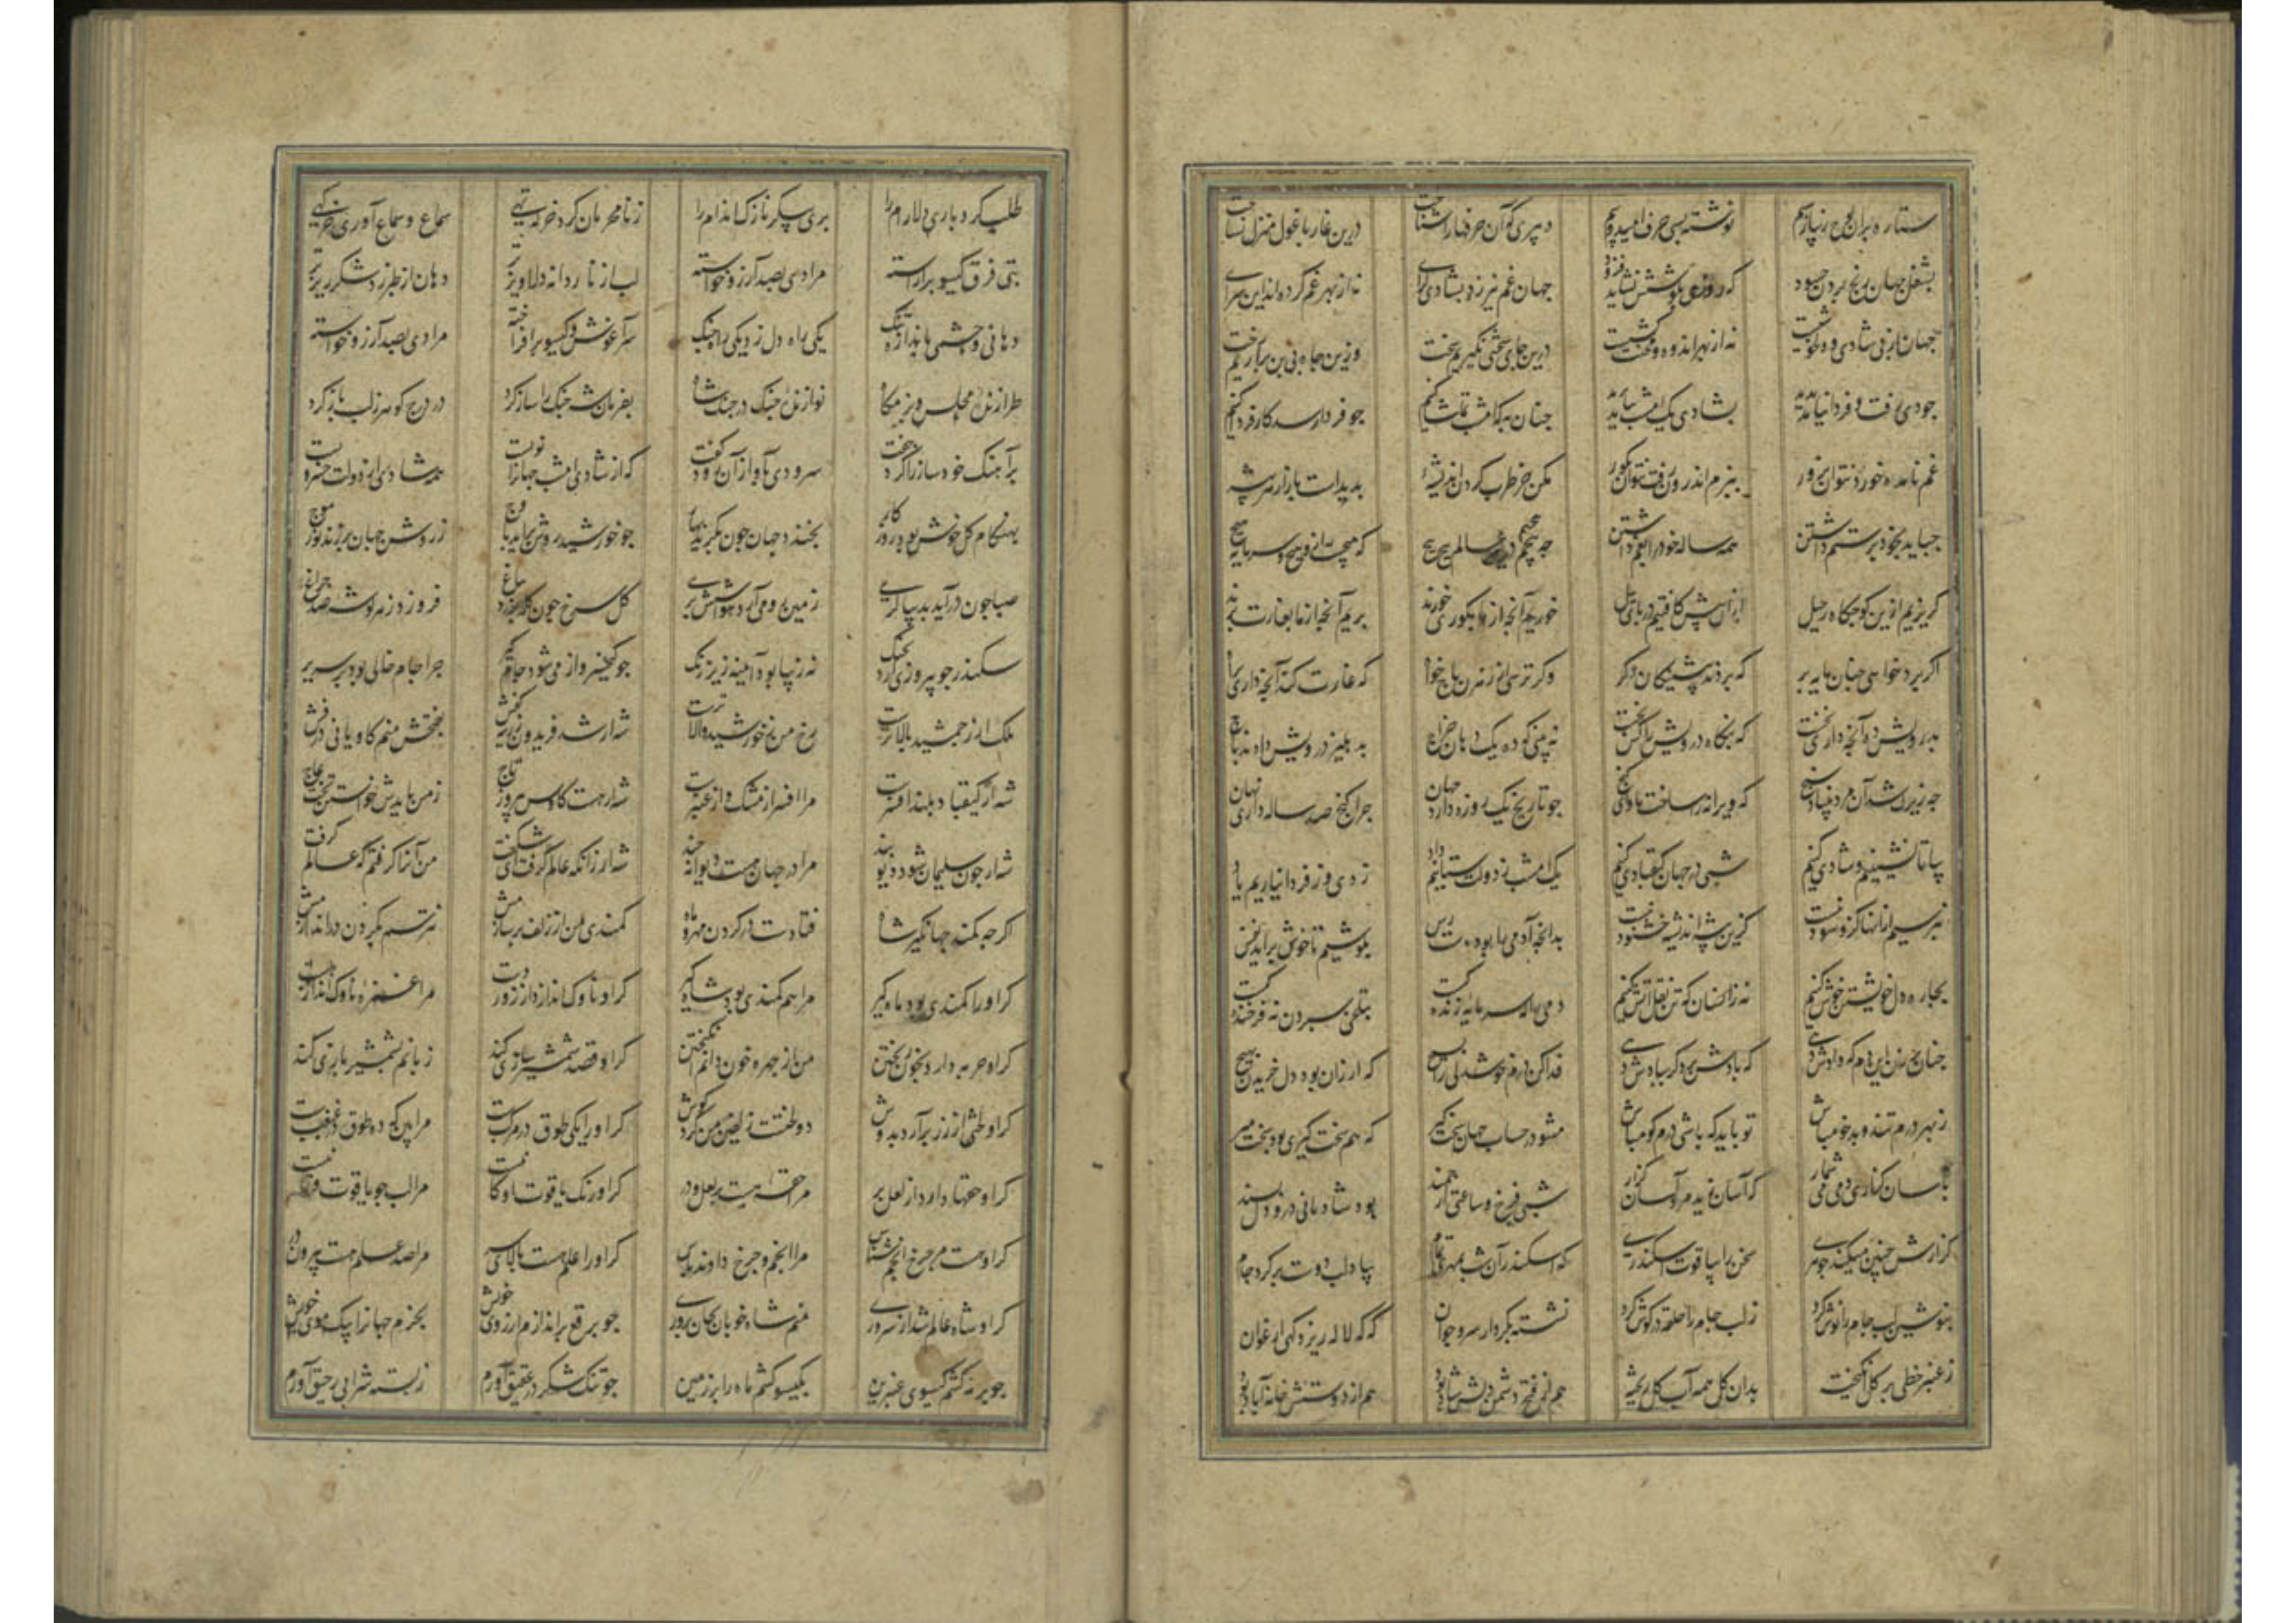 نوشته بسی حرف امید و بیم دبیری کو آن حرفها را شناخت درین غار با غول منزل نساخت
بشغل جهان رنج بردن چه سود که روزی بکوشش نشاید فزود جهان غم نیرزد بشادی گرای نه از بهر غم کرده‌اند این سرای
جهان از پی شادی و دلخوشیست نه از بهر اندوه و محنت کشیست درین جای سختی نگیریم سخت وزین چاه بی بن برآریم رخت
چو دی رفت و فردا نیامد پدید بشادی یک امشب بباید چنان به که امشب تماشا کنیم چو فردا رسد کار فردا کنیم
غم نامده خورد نتوان بزور ببزم اندرون رفت نتوان بگور مکن جز طرب کردن اندیشه پدید است بازار هر پیشه
چه باید بخود بر ستم داشتن همه ساله خود را بغم داشتن چه پیچیم در عالم پیچ پیچ که هیچست ازو هیچ و سرمایه هیچ
گریزیم ازین کوچگاه رحیل از آن پیش کافتیم در پای پیل خوریم آنچه از ما بگوری خورند بریم آنچه از ما بغارت برند
اگر برد خواهی چنان مایه بر که بردند پیشینگان دگر وگر ترسی از رهزن باج خواه که غارت کند آنچه داری براه
بدرویش ده آنچه داری نخست که بنگاه درویش را کس نجست نه بینی که ده یک دهان خراج بدهلیز درویش دادند باج
چه زیرک شد آن مرد بنیاد سنج که ویرانه را ساخت ماوای گنج چو تاریخ یک روزه دارد جهان چرا گنج صد ساله داری نهان
بیا تا نشینیم و شادی کنیم شبی در جهان کیقبادی کنیم یک امشب ز دولت ستانیم داد ز دی و ز فردا نیاریم یاد
بترسیم از آنها کزو سود نیست کزین پیش اندیشه خشنود نیست بدانچ آدمی را بود دسترس بکوشیم تا خوش برآید نفس
بچاره دل خویشتن خوش کنیم نه زانسان که تن نعل آتش کنیم دمی را که سرمایه زندگیست بتلخی سپردن نه فرخندگیست
چنان بر زن این دم که دادش دهی که بادش دهی گر ببادش دهی فدا کن درم خوشدلی را بسیچ که ارزان بود دل خریدن بهیچ
ز بهر درم تند و بدخو مباش تو باید که باشی درم گو مباش مشو در حساب جهان سخت گیر که هم سخت گیری بود سخت میر
بآسان گذاری دمی می شمار که آسان زید مرد آسان گذار شبی فرخ و ساعتی ارجمند بود شادمانی درو دل پسند
گزارش چنین میکند جوهری سخن را بیاقوت اسکندری که اسکندر آن شب بمهر تمام بیاد لب دوست پر کرد جام
بنوشین لب جام را نوش کرد ز لب جام را حلقه در گوش کرد نشسته بکردار سرو جوان که گه لاله ریزد گهی ارغوان
ز عنبر خطی بر گل انگیخت بدان گل همه آب گل ریخته هم از فتح دشمن دلش شاد بود هم از دوستش خانه آباد بود
طلب کرد یار دلارام را پری پیکر نازک اندام را ز نامحرمان کرد خرگه تهی سماع و سماع آوری خرگهی
بتی فرق و گیسو برآراسته مرادی بصد آرزو خواسته لب از ناردانه دلاویزتر دهان از طبرزد شکرریزتر
دهانی و چشمی باندازه تنگ یکی راه دل زد یکی راه چنگ سر آغوش و گیسو برافراخته مرادی بصد آرزو خواسته
طرازنده مجلس و بزمگاه نوازنده چنگ در چنگ شاه بفرمان شه چنگ را ساز کرد در درج گوهر ز لب باز کرد
برآهنگ خود ساز را کرد جفت سرودی بآواز آن رود گفت که از شادی امشب جهان را نویست همه شادی از دولت خسرویست
بهنگام گل خوش بود روزگار بخندد جهان چون بگرید بهار چو خورشید روشن برآید باوج ز روشن جهان برزند نور موج
صبا چون درآید بدیباگری زمین رومی آرد هوا ششتری گل سرخ چون کله بندد بباغ فروزد ز هر گوشه صد چراغ
سکندر چو پیروزی آرد بچنگ نه زیبا بود آینه زیر زنگ چو کیخسرو از می شود جامگیر چرا جام خالی بود بر سریر
ملک گر ز جمشید بالاترست رخ من ز خورشید والاترست شه ار شد فریدون زرینه کفش بفتحش منم کاویانی درفش
شه ار کیقباد بلند افسرست مرا افسر از مشک و از عنبرست شه ار هست کاوس پیروزه تاج ز من بایدش خواستن تخت عاج
شه ار چون سلیمان شود دیو بند مرا در جهان هست دیوانه چند شه ار زانکه عالم گرفت ای شگفت من آنرا گرفتم که عالم گرفت
اگر چه کمند جهانگیر شاه فتادست در گردن مهر و ماه کمندی من از زلف بر سازمش نترسم بگردن در اندازمش
گر او را کمندی بود ماه گیر مرا هم کمندی بود شاه گیر گر او ناوک اندازد از زور دست مرا غمزه ناوک انداز هست
گر او حربه دارد بخون ریختن من از چهره خون دانم انگیختن گر او قصد شمشیربازی کند زبانم بشمشیر بازی کند
گر او طشتی از زر برآرد بدوش دو طشتست زلفین من گرد گوش گر او را یکی طوق بر مرکبست مرا بین که ده طوق بر غبغبست
گر او حقها دارد از لعل پر مرا حقه هست پر لعل و در گر او رنگ یاقوت ناوکانیست مرا لب چو یاقوت
گر او هست بر چرخ انجم شناس مرا انجم و چرخ دارند پاس گر او را علم هست بالای سر مرا صد علم هست بیرون در
گر او شاه عالم شد از سروری منم شاه خوبان بجان پروری چو برقع براندازم از روی خویش بخرم جهان را بیک موی خویش
چو بر مه کشم گیسوی عنبرین بگیسو کشم ماه را بر زمین چو تنگ شکر در عقیق آورم ز پسته شرابی رحیق آورم